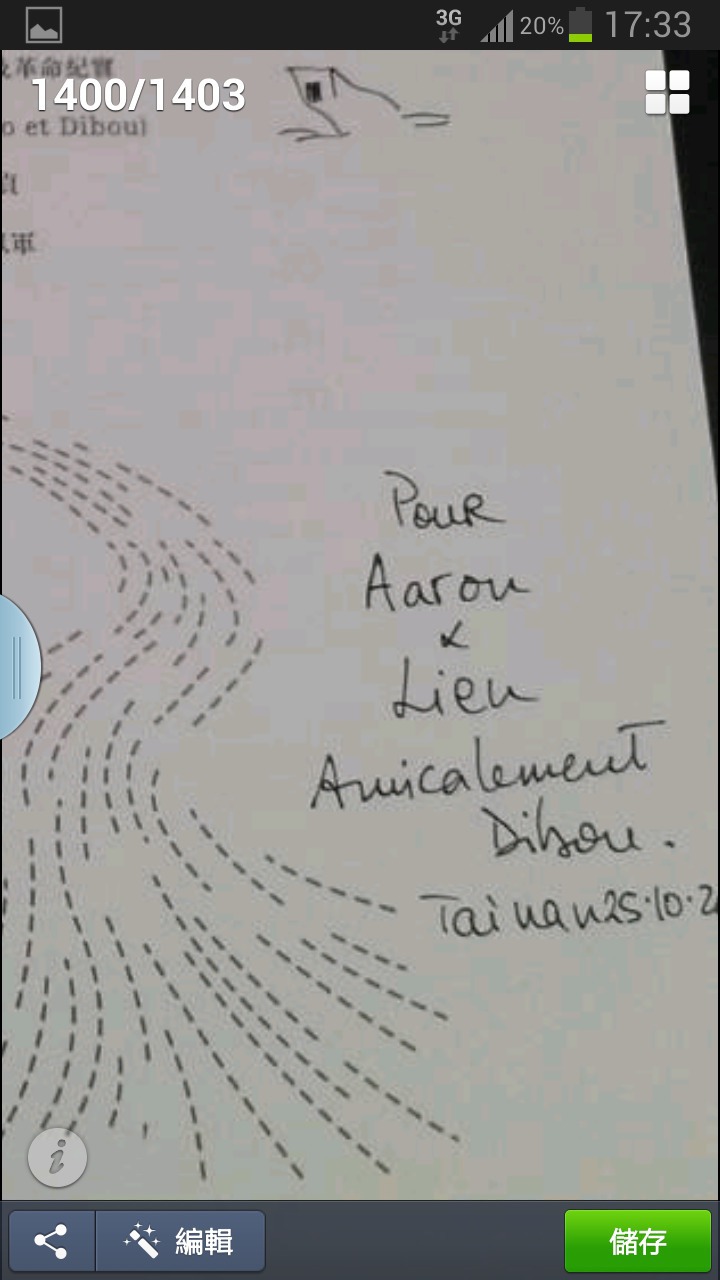 3G 20% 17:33
革命紀實
1400/1403
o et Dibou)
Pour
Aaron
&
Lien
Amicalement
Dibou.
Tainan 25.10.2
編輯
儲存